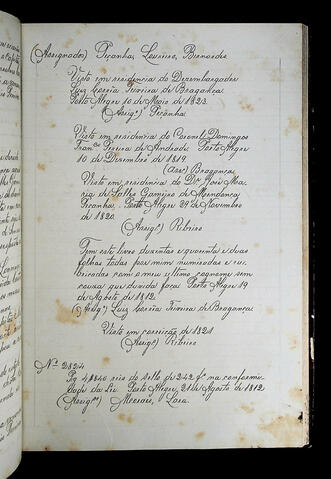 (Assignados) Peçanha, Loureiro, Bernardes
Visto em residencia do Desembargador
Luiz Corrêa Teixeira de Bragança
Porto Alegre 10 de Maio de 1823.
(Assig.º) Peçanha
Visto em residencia do Coronel Domingos
Fran.co Pereira de Andrade Porto Alegre
10 de Dezembro de 1819.
(Ass) Bragança
Visto em residencia do Dr. José Ma
ria de Salles Gameiro de Mendonça
Peçanha. Porto Alegre 29 de Novembro
de 1820.
(Assig.) Ribeiro
Tem este livro duzentas e quarenta e duas
folhas todas por mim numeradas e ru
bricadas com o meu ultimo cognome sem
cousa que duvida faça Porto Alegre 19
de Agosto de 1812.
(Assig.º) Luiz Corrêa Teixeira de Bragança.
Visto em correição de 1821
(Assig.º) Ribeiro
N.º 2824
Pg 4$840 reis do sello de 242 fs na conformi
dade da Lei Porto Alegre, 21 de Agosto de 1812
(Assig.os) Moraes, Lara.